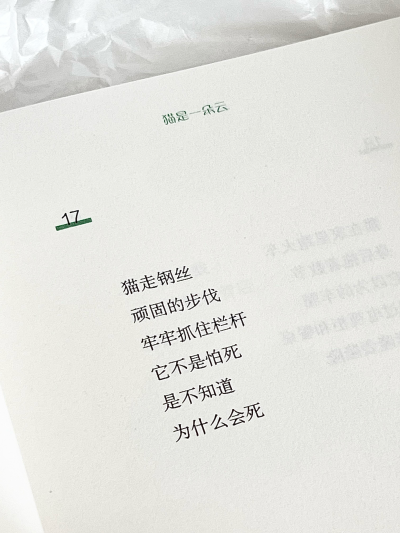 猫是一朵云
17
猫走钢丝
顽固的步伐
牢牢抓住栏杆
它不是怕死
是不知道
为什么会死